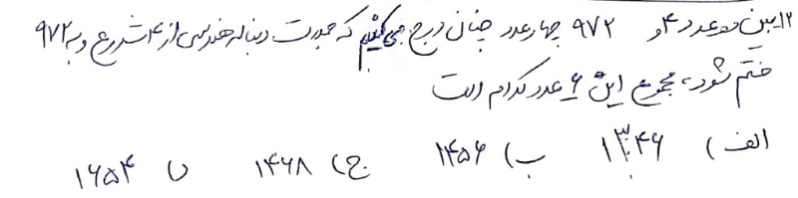 ۱۲) بین دو عدد ۴ و ۹۷۲ چهار عدد چنان درج می‌کنیم که بصورت دنباله هندسی از ۴ شروع و به ۹۷۲
ختم شود، مجموع این ۶ عدد کدام است
الف) ۱۳۴۶ ب) ۱۴۵۶ ج) ۱۴۶۸ د ۱۶۵۴